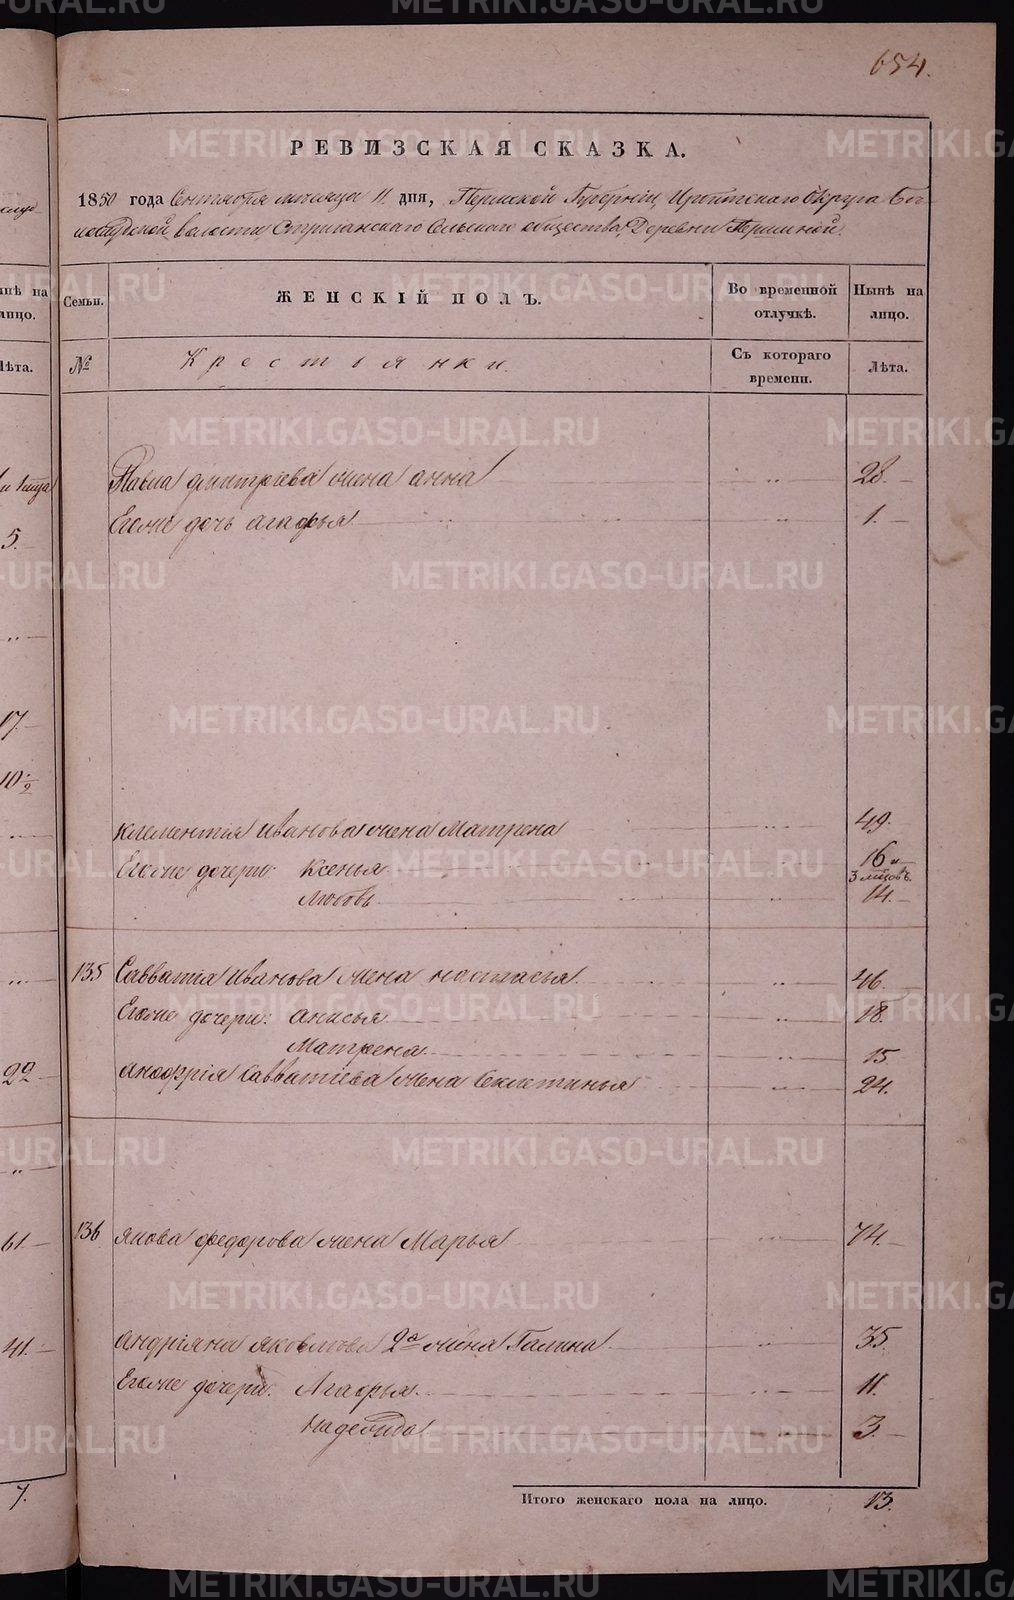 654.
РЕВИЗСКАЯ СКАЗКА.
1850 года Сентября месяца 11 дня, Пермской Губерніи, Ирбитскаго Округа
волости, Стриганскаго Сельскаго общества, Деревни Першиной.
Семьи. ЖЕНСКІЙ ПОЛЪ. Во временной отлучкѣ. Нынѣ на лицо.
№ Крестьянки. Съ котораго времени. Лѣта.
Павла Дмитріева жена Анна 28.
Его же дочь Агафья 1.
Клементія Иванова жена Матрена 49.
Его же дочери: Ксенья 16 и 3 мѣсов.
Любовь 14.
135 Савватія Иванова жена Настасья 46.
Его же дочери: Анисья 18.
Матрена 15
Анофрія Савватіева жена Секлетинья 24.
136 Якова Федорова жена Марья 74.
Андріяна Яковлева 2я жена Галина 35.
Его же дочери: Агафья 11.
Надежда 3.
Итого женскаго пола на лицо. 13.
нѣ на
лицо.
лѣта.
5.
17.
10 ½
22
61.
41.
7.
METRIKI.GASO-URAL.RU